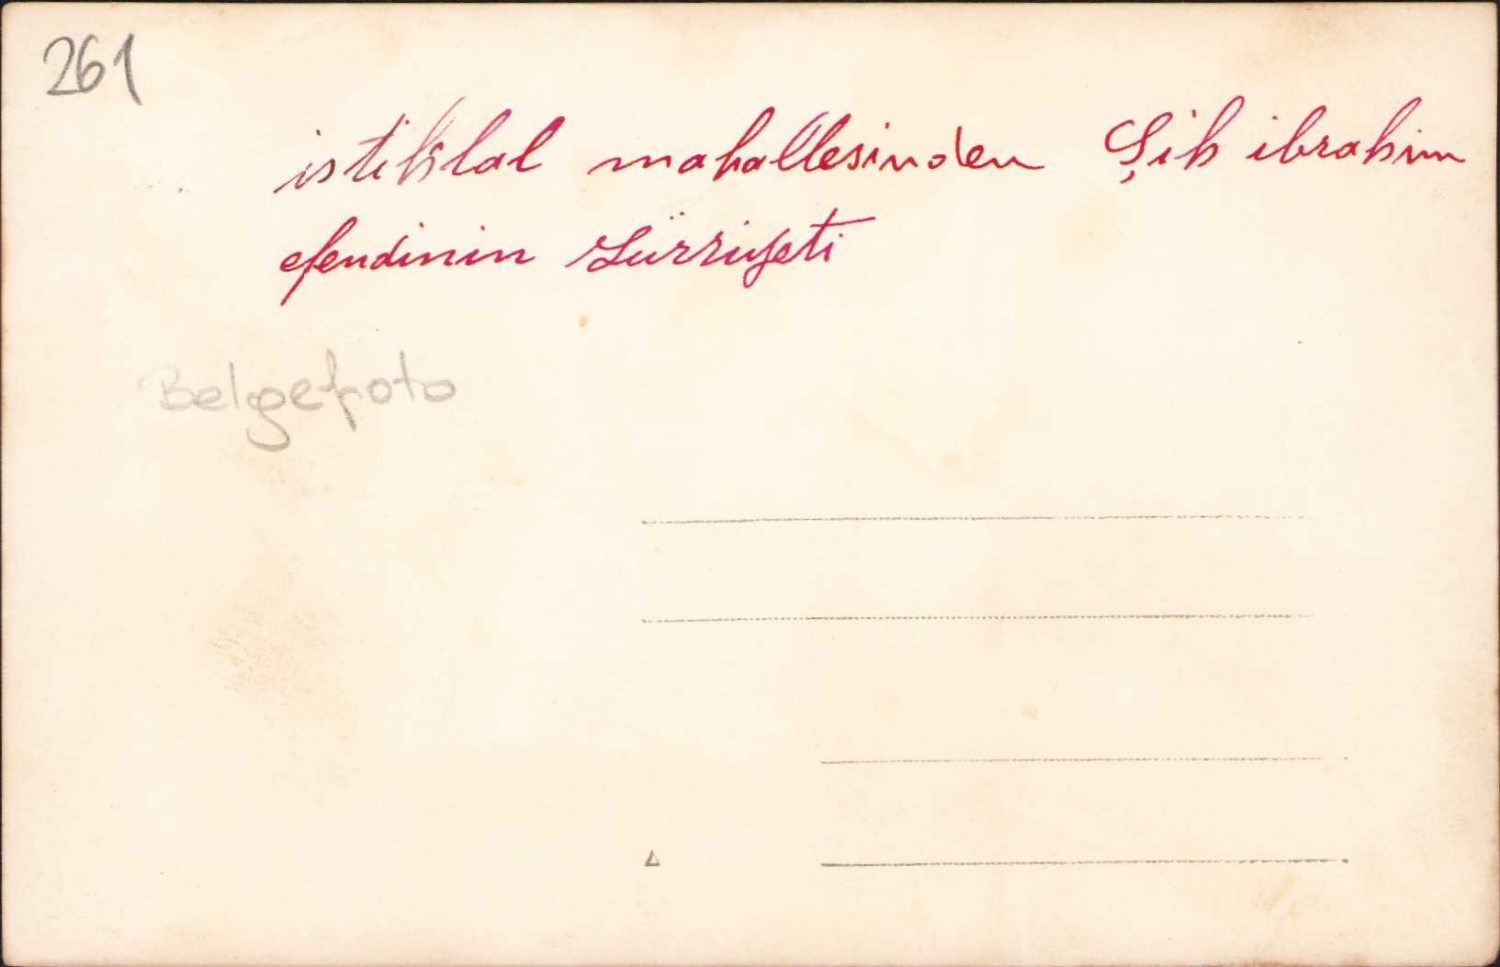 261
istiklal mahallesinden Şih ibrahim
efendinin zürriyeti
Belgefoto